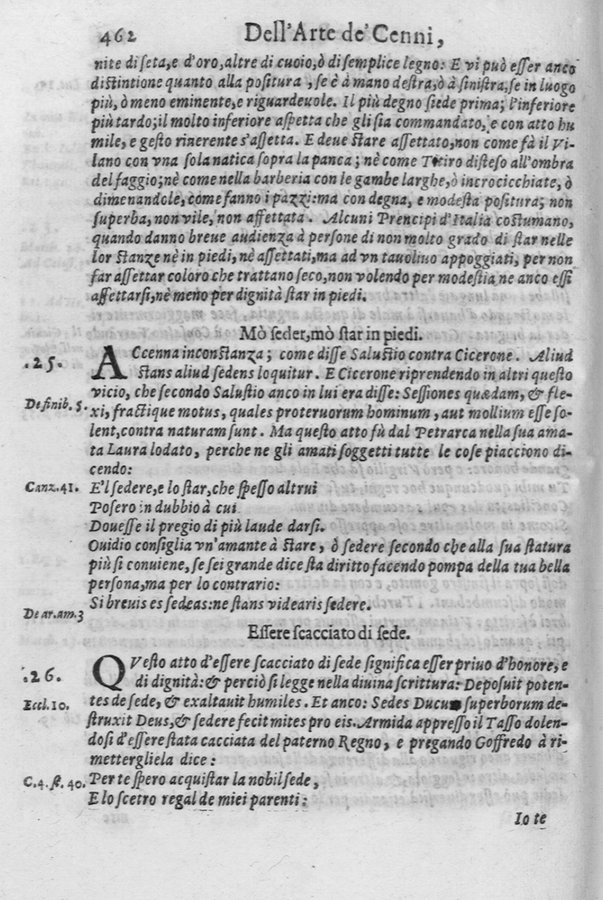 462 Dell'Arte de' Cenni,
nite di ſeta, e d'oro, altre di cuoio, ò di ſemplice legno: E vi può eſſer anco
diſtintione quanto alla poſitura, ſe è à mano deſtra, ò à ſiniſtra, ſe in luogo
più, ò meno eminente, e riguardeuole. Il più degno ſiede prima; l'inferiore
più tardo; il molto inferiore aſpetta che gli ſia commandato, e con atto hu
mile, e geſto riuerente s'aſſetta. E deue ſtare aſſettato, non come fà il Vi-
lano con vna ſola natica ſopra la panca; nè come Titiro diſteſo all'ombra
del faggio; nè come nella barberia con le gambe larghe, ò incrocicchiate, ò
dimenandole, come fanno i pazzi: ma con degna, e modeſta poſitura; non
ſuperba, non vile, non affettata. Alcuni Prencipi d'Italia coſtumano,
quando danno breue audienza à perſone di non molto grado di ſtar nelle
lor ſtanze nè in piedi, nè aſſettati, ma ad vn tauolino appoggiati, per non
far aſſettar coloro che trattano ſeco, non volendo per modeſtia ne anco eſſi
aſſettarſi, nè meno per dignità ſtar in piedi.
Mò ſeder, mò ſtar in piedi.
.25. ACcenna inconſtanza; come diſſe Saluſtio contra Cicerone. Aliud
ſtans aliud ſedens loquitur. E Cicerone riprendendo in altri queſto
vicio, che ſecondo Saluſtio anco in lui era diſſe: Seſſiones quædam, & fle-
De finib. 5. xi, fractique motus, quales proteruorum hominum, aut mollium eſſe ſo-
lent, contra naturam ſunt. Ma queſto atto fù dal Petrarca nella ſua ama-
ta Laura lodato, perche ne gli amati ſoggetti tutte le coſe piacciono di-
cendo:
Canz. 41. E'l ſedere, e lo ſtar, che ſpeſſo altrui
Poſero in dubbio à cui
Doueſſe il pregio di più laude darſi.
Ouidio conſiglia vn'amante à ſtare, ò ſedere ſecondo che alla ſua ſtatura
più ſi conuiene, ſe ſei grande dice ſta diritto facendo pompa della tua bella
perſona, ma per lo contrario:
Si breuis es ſedeas: ne ſtans videaris ſedere.
De ar. am. 3
Eſſere ſcacciato di ſede.
.26. QVeſto atto d'eſſere ſcacciato di ſede ſignifica eſſer priuo d'honore, e
di dignità: & perciò ſi legge nella diuina ſcrittura: Depoſuit poten-
Eccl. 10. tes de ſede, & exaltauit humiles. Et anco: Sedes Ducum ſuperborum de-
ſtruxit Deus, & ſedere fecit mites pro eis. Armida appreſſo il Taſſo dolen-
doſi d'eſſere ſtata cacciata del paterno Regno, e pregando Goffredo à ri-
mettergliela dice:
C. 4. ſt. 40. Per te ſpero acquiſtar la nobil ſede,
E lo ſcetro regal de miei parenti:
Io te